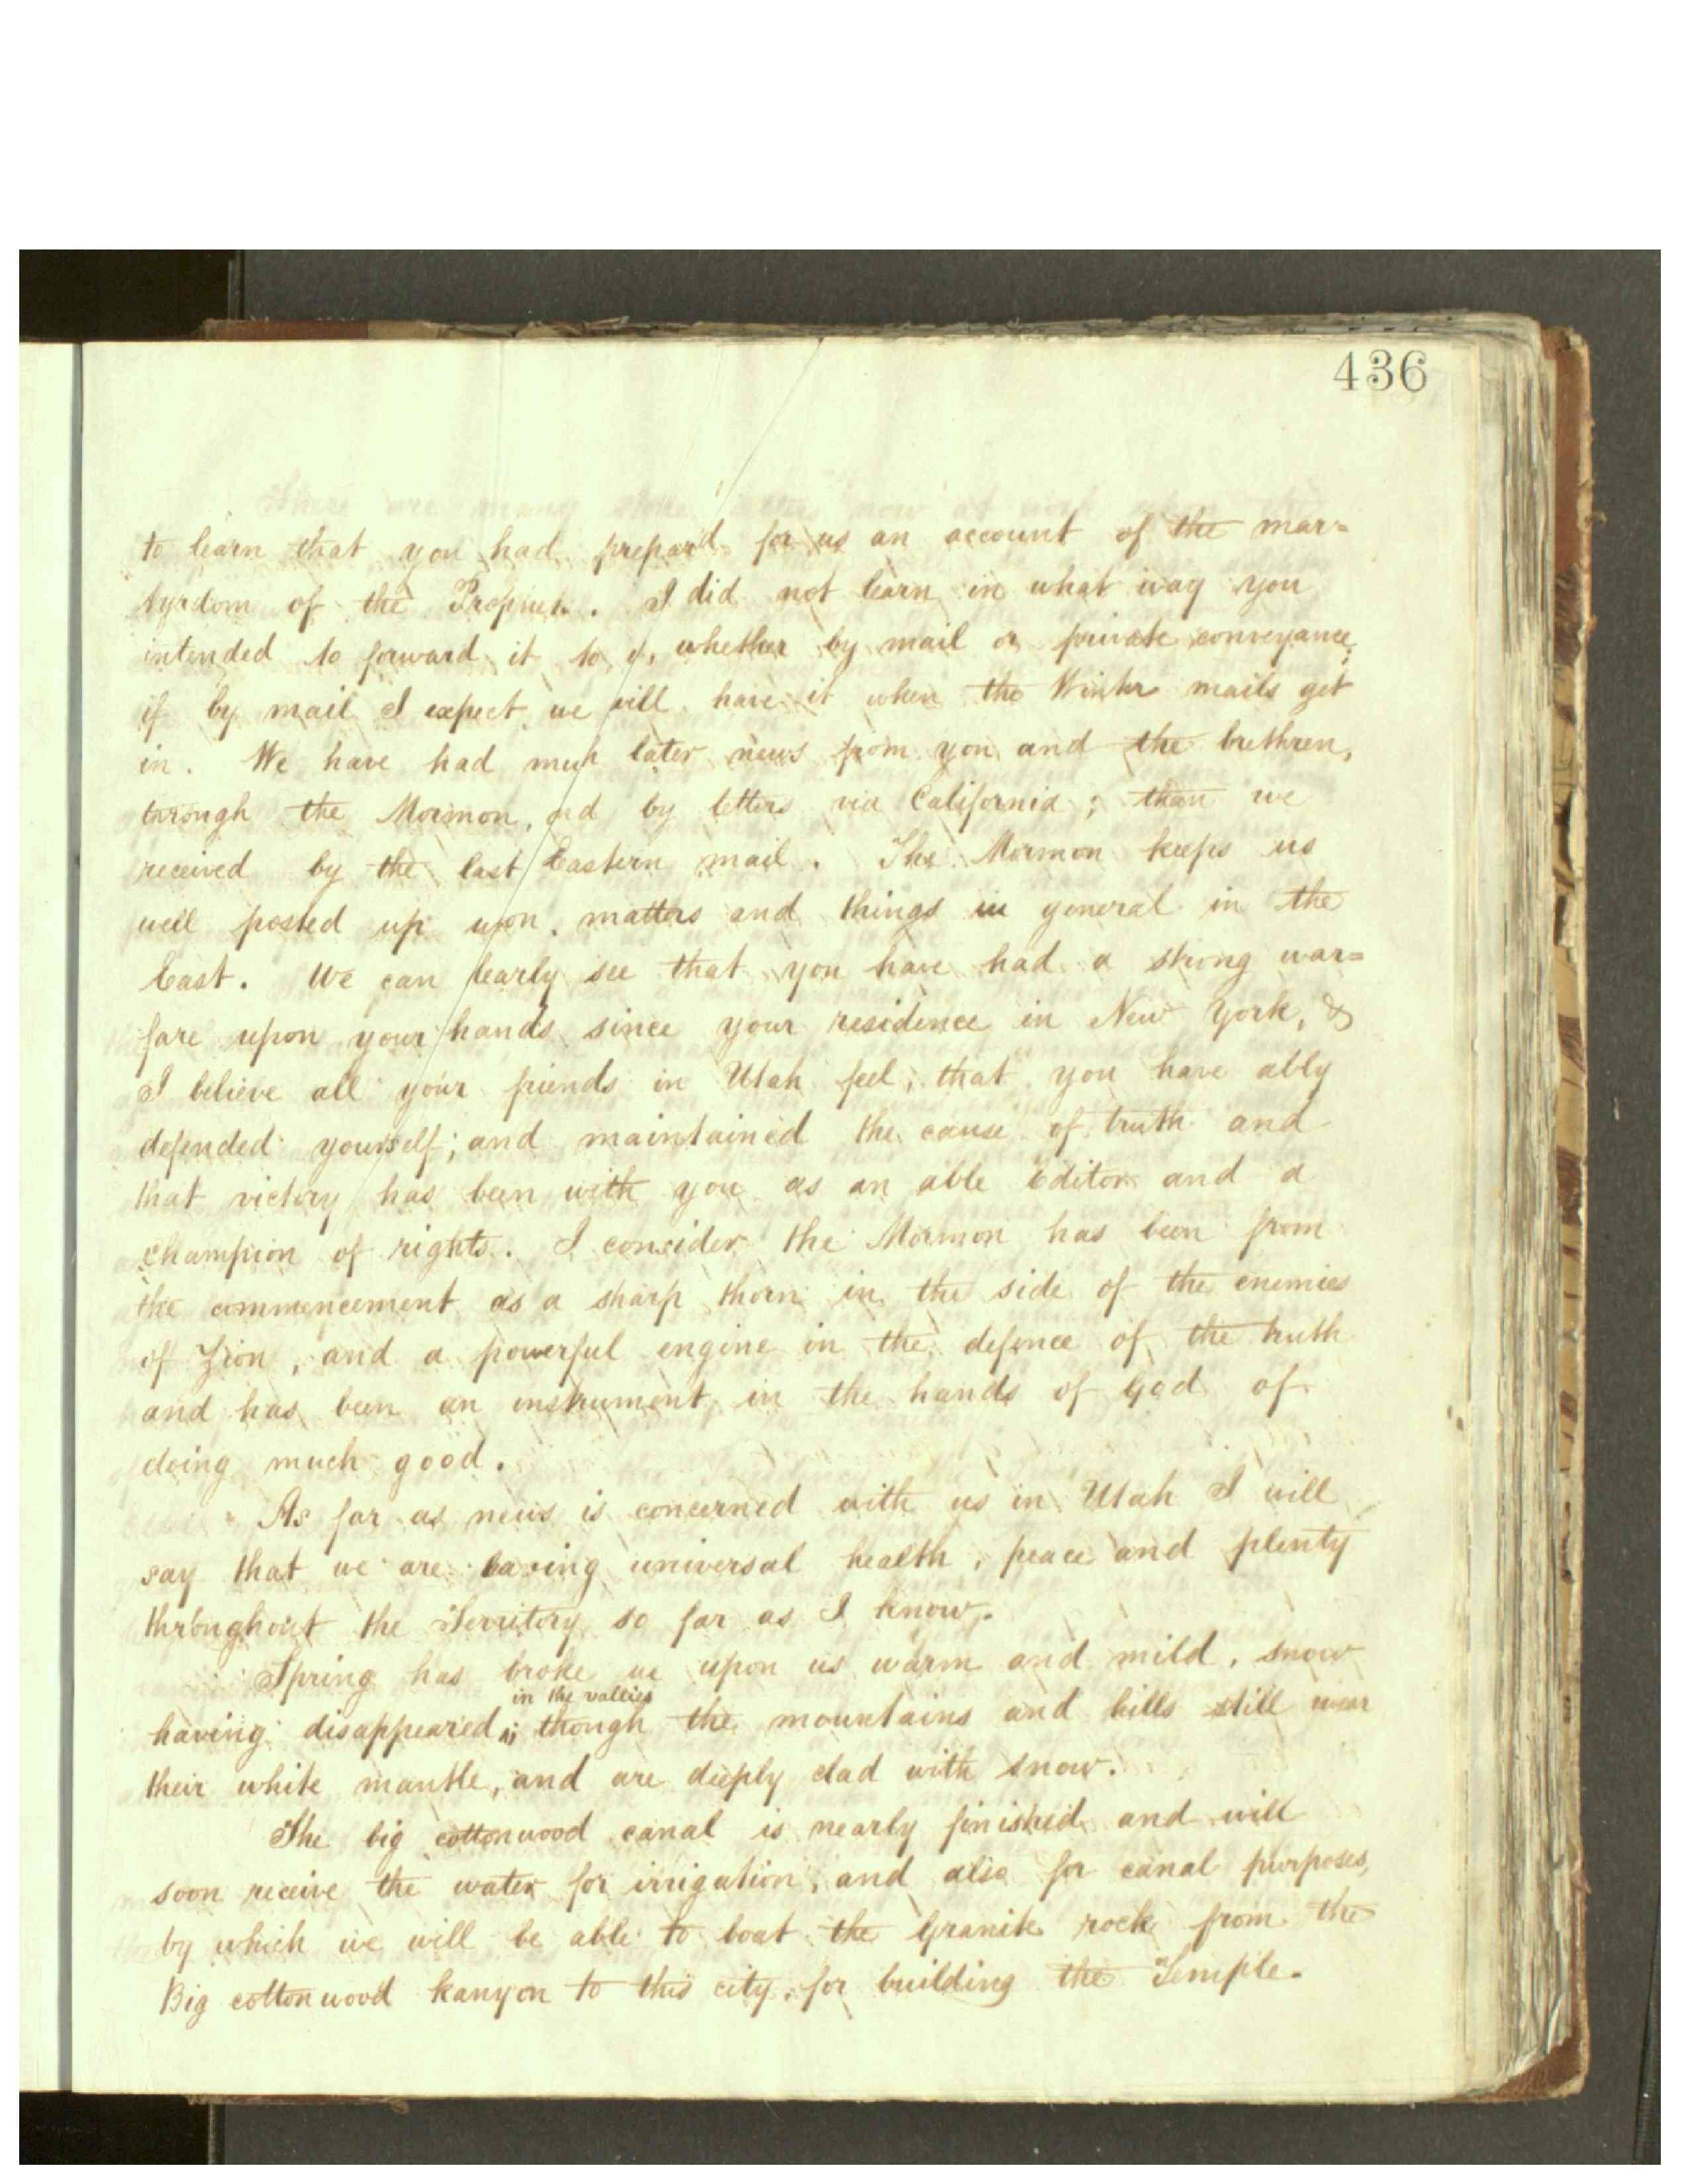 436
to learn that you had prepar'd for us an account of the mar=
tyrdom of the Prophets. I did not learn in what way you
intended to forward it to whether by mail or private conveyance;
if by mail I expect we will have it when the Winter mails get
in. We have had much later news from you and the brethren,
through the Mormon, and by letters via California; than we
received by the last Eastern mail. The Mormon keeps us
well posted up upon matters and things in general in the
East. We can clearly see that you have had a strong war=
fare upon your hands since your residence in New York, &
I believe all your friends in Utah feel, that you have ably
defended yourself; and maintained the cause of truth and
that victory has been with you as an able Editor and a
champion of rights. I consider the Mormon has been from
the commencement as a sharp thorn in the side of the enemies
of Zion, and a powerful engine in the defence of the truth
and has been an instrument in the hands of God of
doing much good.
As far as news is concerned with us in Utah I will
say that we are having universal health, peace and plenty
throughout the Territory so far as I know.
Spring has broke upon us warm and mild, snow
in the vallies
having disappeared; though the mountains and hills still wear
their white mantle, and are deeply clad with snow.
The big cottonwood canal is nearly finished and will
soon receive the water for irrigation, and also for canal purposes,
by which we will be able to boat the Granite rock from the
Big cottonwood kanyon to this city, for building the Temple.